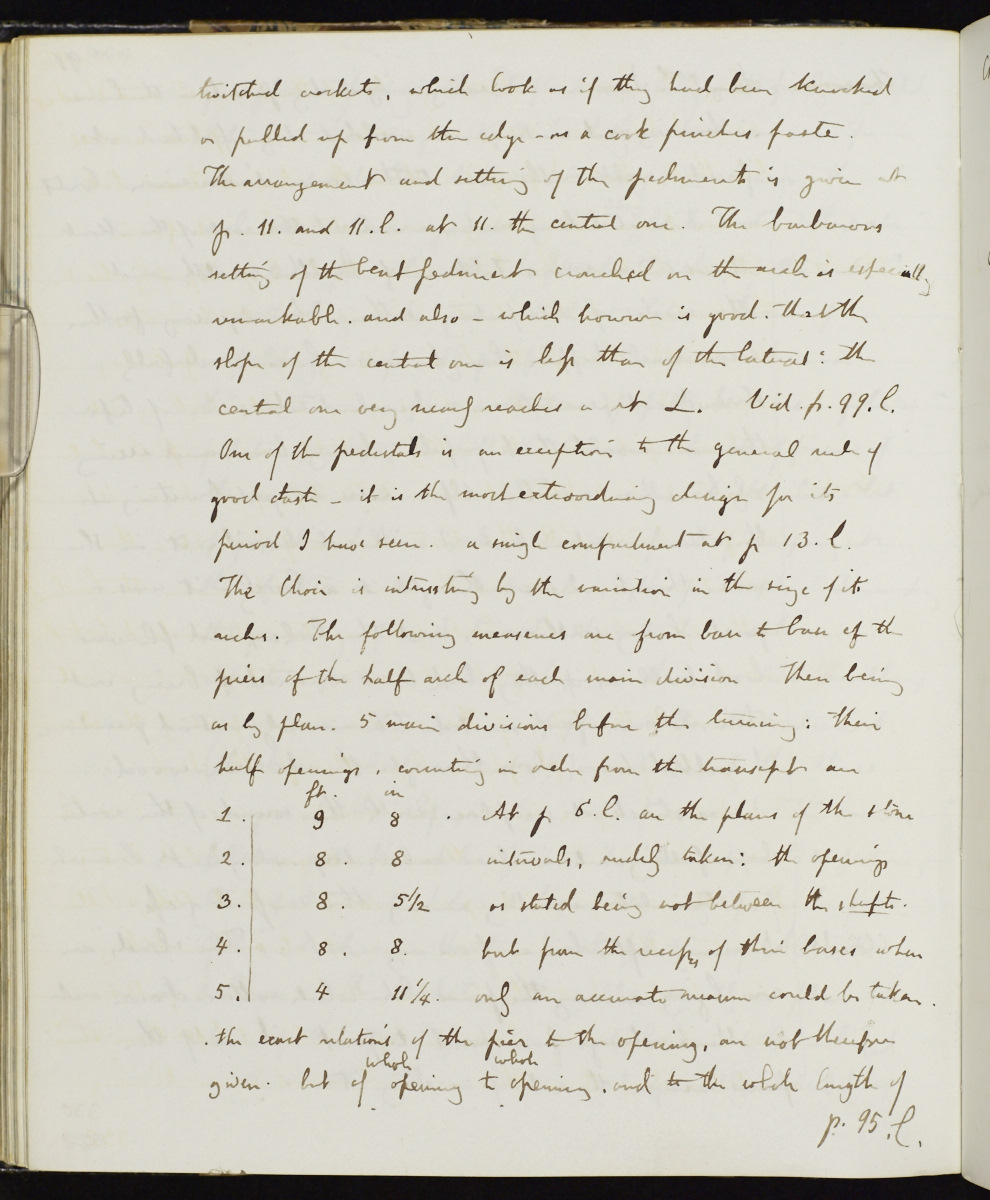 twitched crockets, which look as if they had been knocked
or pulled up from the edge - as a cook pinches paste.
The arrangement and setting of the pediments is given at
p. 11. and 11. l. at 11. the central one. The barbarous
setting of the bent pediment crouched on the arch is especially
remarkable. and also - which however is good. that the
slope of the central one is less than of the lateral: the
central one very nearly reaches a rt L. Vid. p. 99. l.
One of the pedestals is an exception to the general rule of
good taste - it is the most extraordinary design for its
period I have seen. a single compartment at p 13. l.
The Choir is interesting by the variation in the size of its
arches. The following measures are from base to base of the
piers of the half arch of each main division There being
as by plan. 5 main divisions before the turning: their
half openings, counting in order from the transept are
ft. in
1. 9 8. At p 6. l. are the plans of the stone
2. 8. 8 intervals, rudely taken: the openings
3. 8. 5 1/2 as stated being not between the shafts.
4. 8. 8. but from the recesses of their bases where
5. 4 11 1/4. only an accurate measure could be taken.
. the exact relations of the pier to the opening, are not therefore
whole whole
given. but of opening to opening. and to the whole length of
p. 95. l.